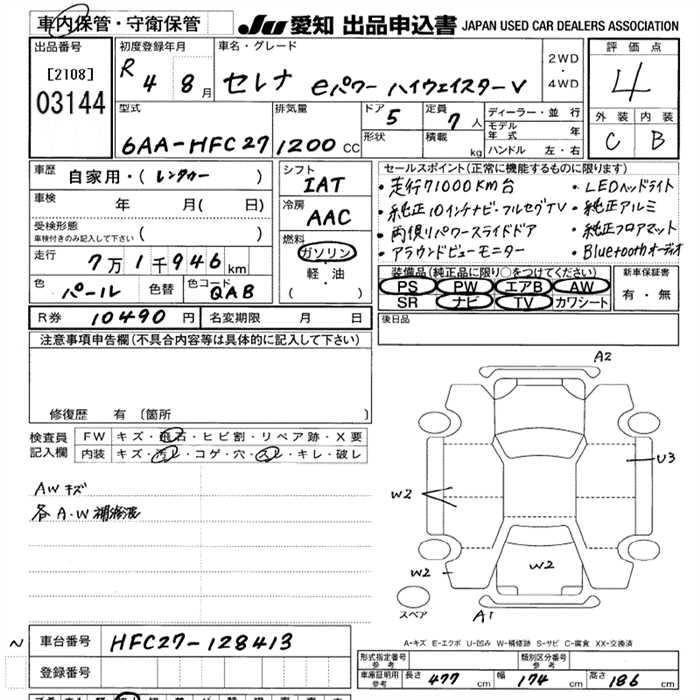 車内保管・守衛保管
JU 愛知 出品申込書 JAPAN USED CAR DEALERS ASSOCIATION
出品番号
[2108]
03144
初度登録年月
R 4 8月
車名・グレード
セレナ eパワー ハイウェイスターV
2WD
・
4WD
評価点
4
外装 内装
C B
型式
6AA-HFC27
排気量
1200 CC
ドア
5
形状
定員
7人
積載
kg
ディーラー・並行
モデル年式 年
ハンドル 左・右
車歴
自家用・(レンタカー)
車検 年 月( 日)
受検形態
車検付きのみ記入して下さい ( )
走行 7万1千946km
色 パール 色替 色コード QAB
R券 10490円 名変期限 月 日
シフト
IAT
冷房
AAC
燃料
ガソリン
・
軽・油
( )
セールスポイント(正常に機能するものに限ります)
・走行71000KM台 ・LEDヘッドライト
・純正10インチナビ・フルセグTV ・純正アルミ
・両側パワースライドドア ・純正フロアマット
・アラウンドビューモニター ・Bluetoothオーディオ
装備品(純正品に限り○をつけてください)
PS PW エアB AW
SR ナビ TV カワシート
新車保証書
有・無
後日品
注意事項申告欄(不具合内容等は具体的に記入して下さい)
修復歴 有 〔箇所
検査員記入欄
FW キズ・飛石・ヒビ割・リペア跡・X要
内装 キズ・汚レ・コゲ・穴・スレ・キレ・破レ
AWキズ
各A・W補修済
A2
U3
W2
W2
W2
A1
スペア
A-キズ E-エクボ U-凹み W-補修跡 S-サビ C-腐食 XX-交換済
車台番号 HFC27-128413
登録番号
形式指定番号
参考
類別区分番号
参考
車庫証明用
参考
長さ 477cm 幅 174cm 高さ 186cm